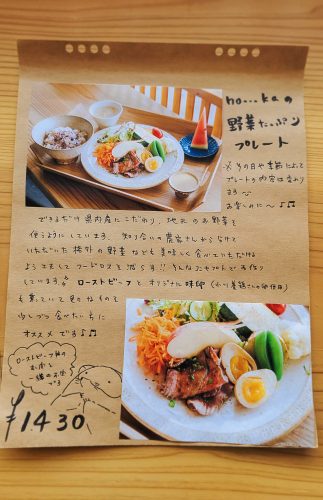 ho...kaの
野菜たっぷり
プレート
※その日や季節によって
プレートの内容は変わり
ます〜
お楽しみに〜♪♪
できるだけ県内産にこだわり、地元のお野菜を
使うようにしています。知り合いの農家さんから分けて
いただいた格外の野菜なども美味しく食べていただける
ようにをして、フードロスを減らす!!そんなコンセプトでお作り
しています。ローストビーフとオリジナル味卵
も乗っていて色々なものを
少しづつ食べたい方に
オススメです♪♪
ローストビーフ
のお肉と
一緒のお肉
です
¥1430